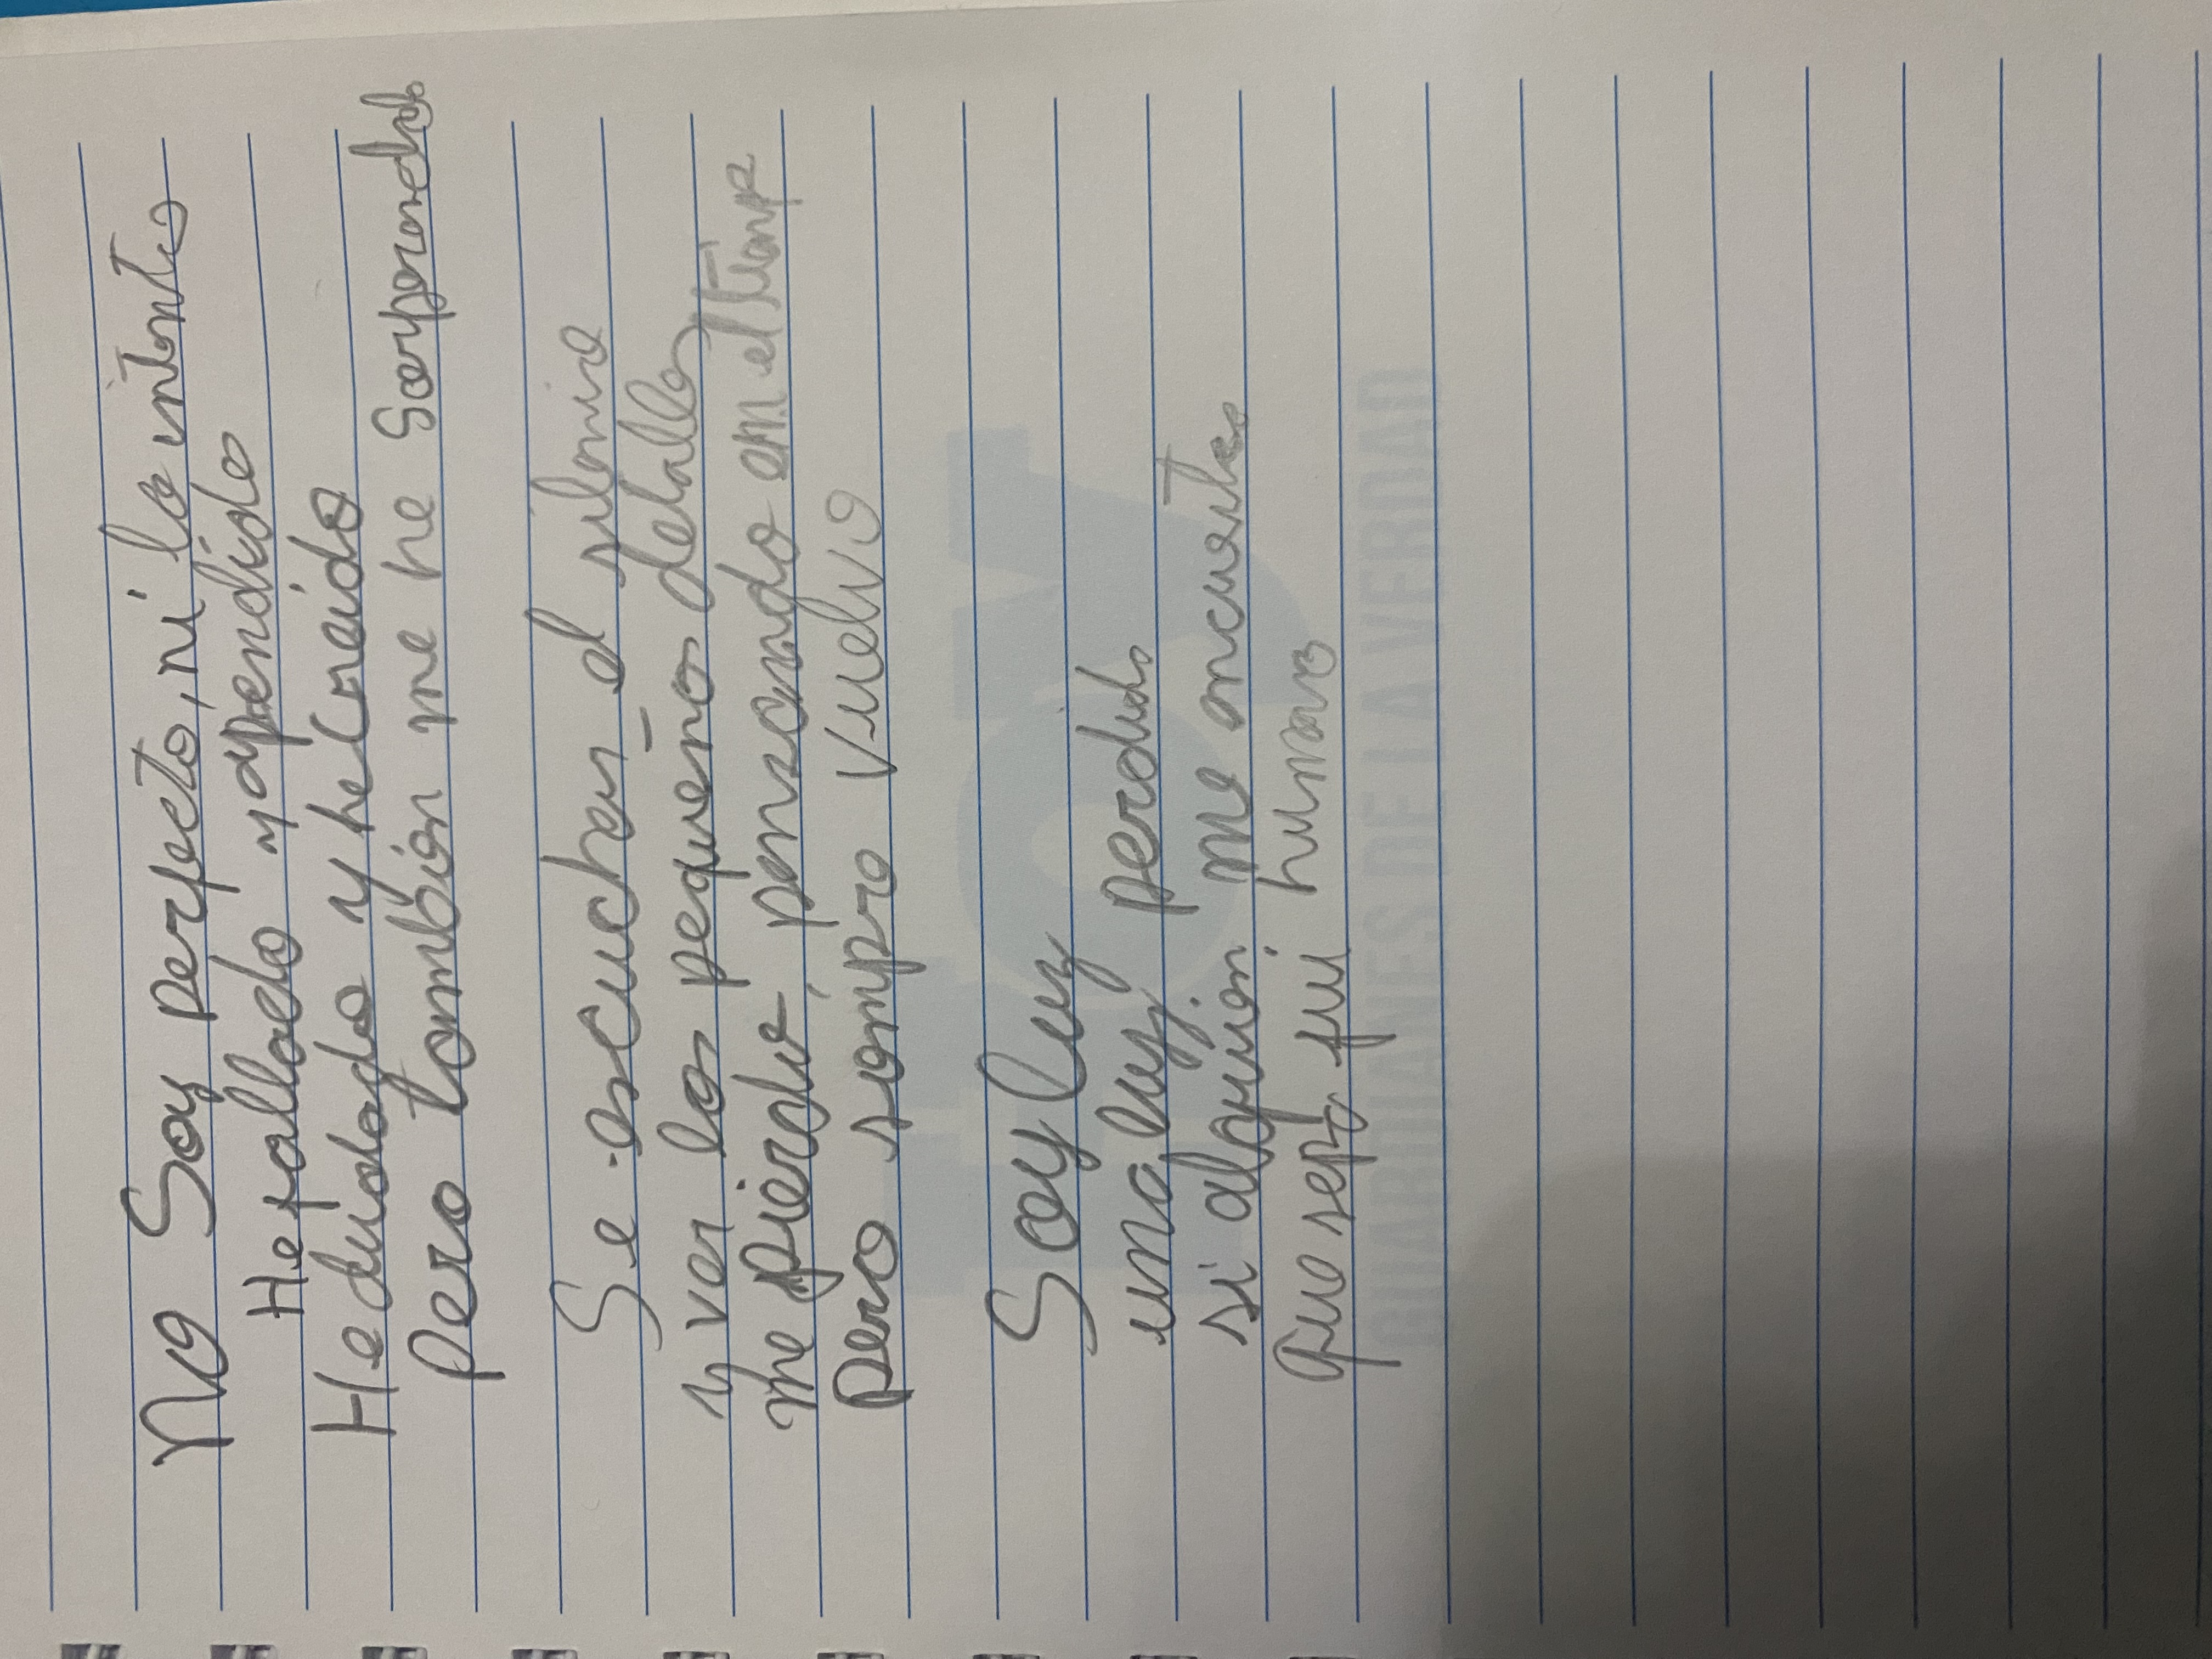 No Soy perfecto, ni lo intento
He fallado y apendido
He dudado y he Creido
pero también me he Sorperendido
Se escuchar el silencio
y ver los pequeños detalles
me pierdo, penzando em el tiempo
pero siempre vuelvo
Soy luz
una luz perdida
si alguien me encuentra
que sepa fui humano
HOY
GUARDIANES DE LA VERDAD